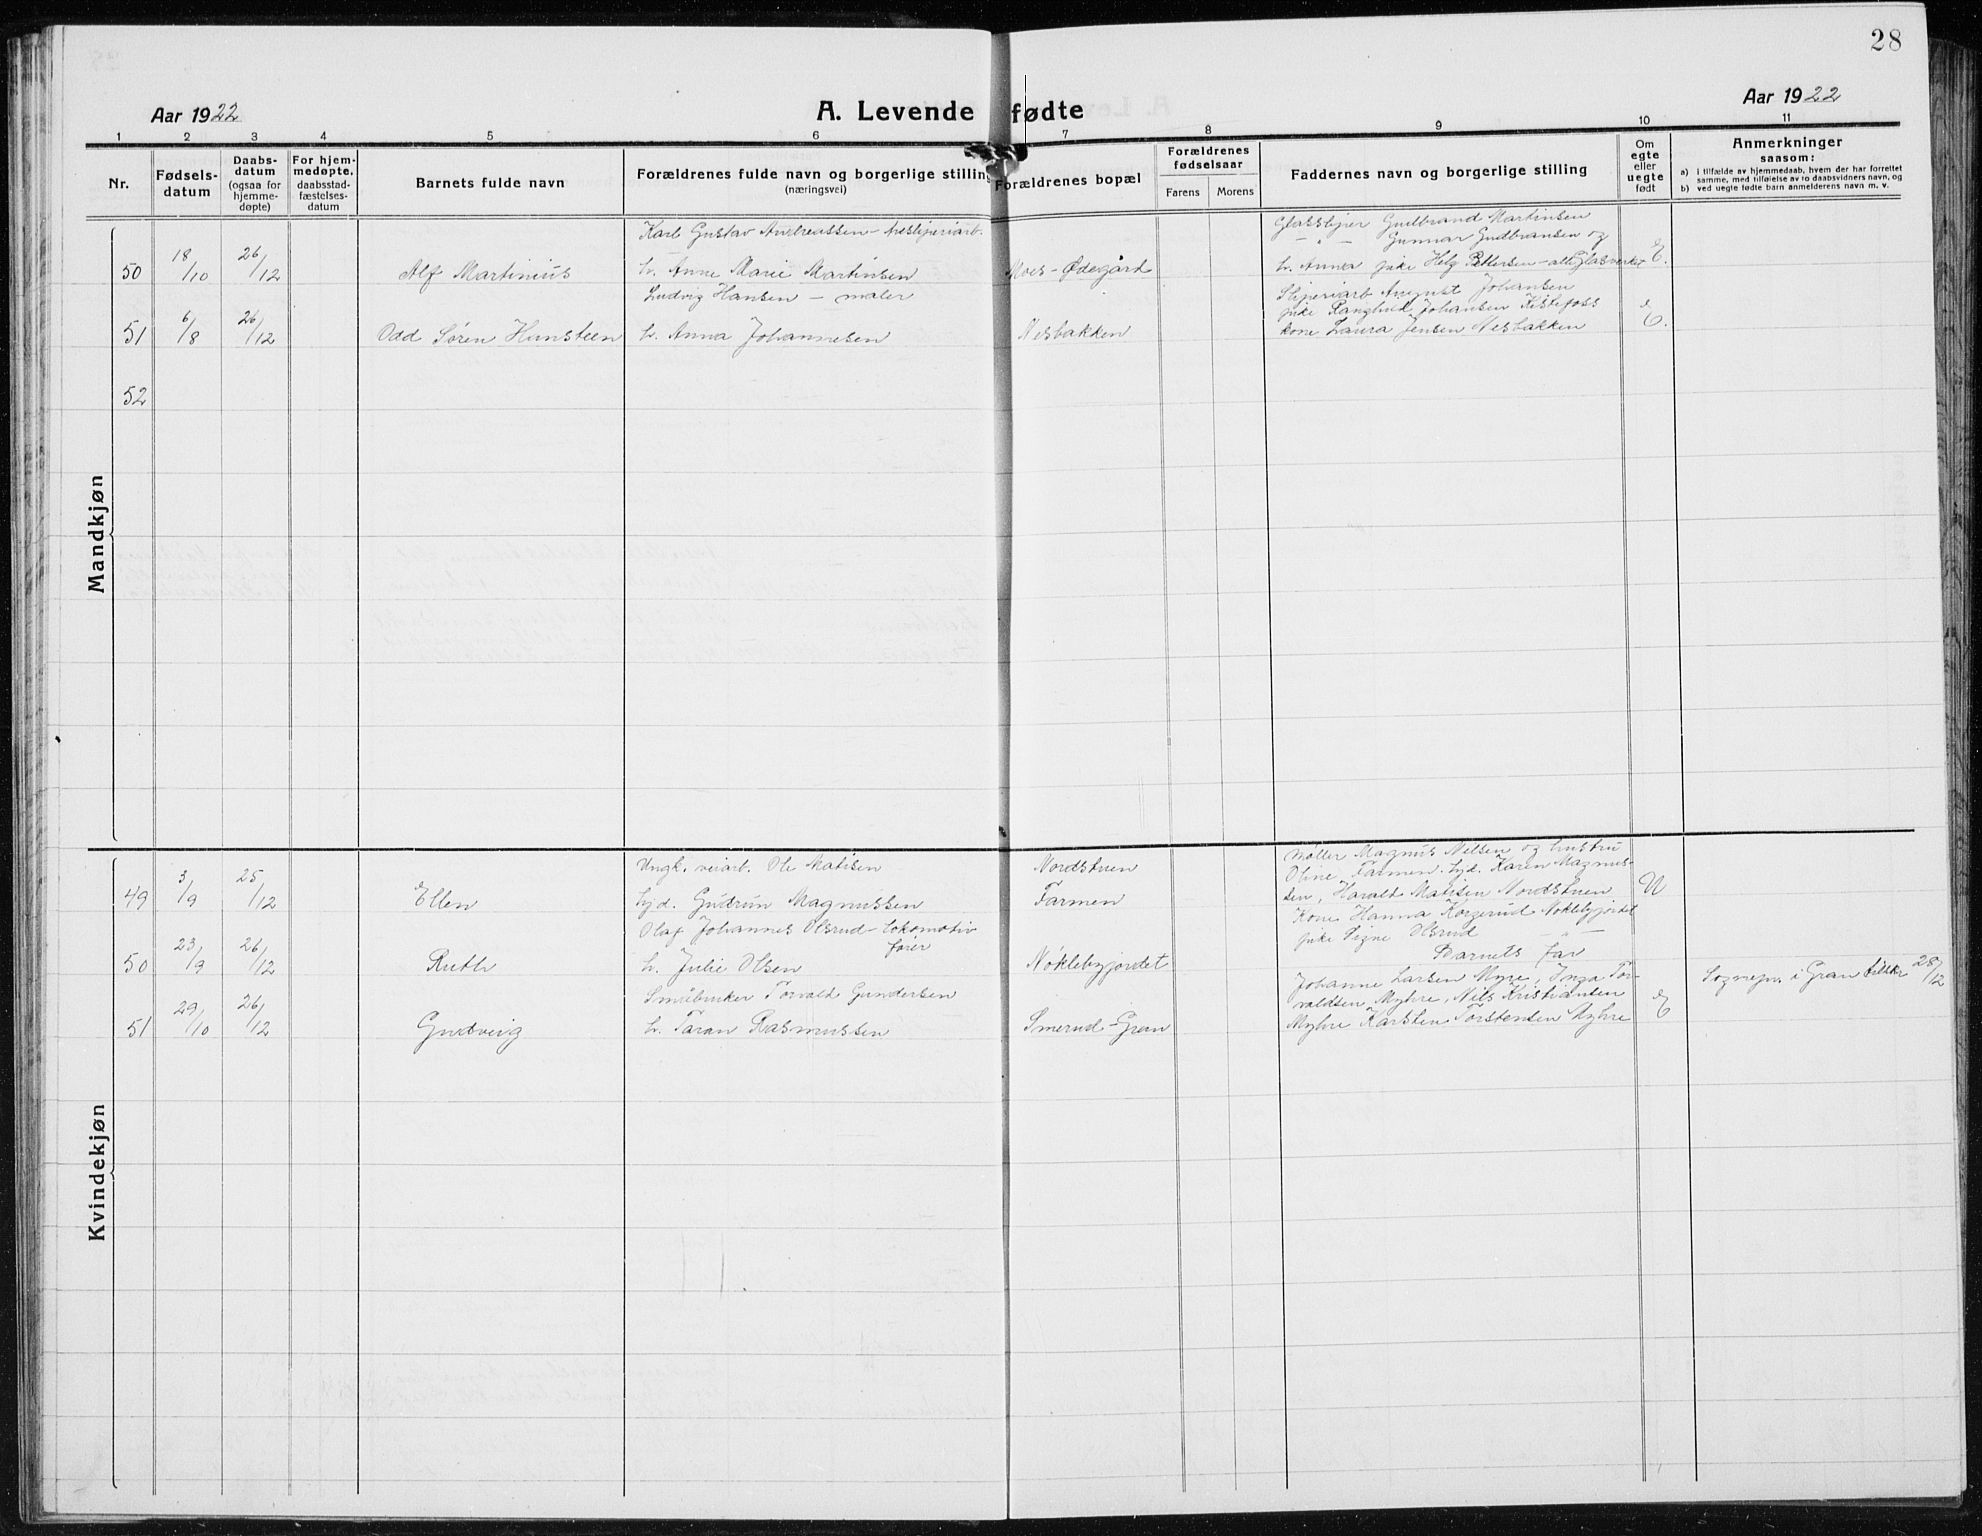 28
Aar 1922
A. Levende fødte
Aar 1922
1 2 3 4 5 6 7 8 9 10 11
Nr.
Fødsels-
datum
Daabs-
datum
(ogsaa for
hjemme-
døpte)
For hjem-
medøpte,
daabsstad-
fæstelses-
datum
Barnets fulde navn
Forældrenes fulde navn og borgerlige stilling
(næringsvei)
Forældrenes bopæl
Forældrenes
fødselsaar
Farens Morens
Faddernes navn og borgerlige stilling
Om
egte
eller
uegte
født
Anmerkninger
saasom:
a) i tilfælde av hjemmedaab, hvem der har forrettet
samme, med tilføielse av to daabsvidners navn, og
b) ved uegte fødte barn anmelderens navn m. v.
Mandkjøn
50 18/10 26/12 Alf Martinius
Karl Gustav Andreassen
h. Anne Marie Martinsen
Moes-Ødegård
Glassliper Gudbrand Martinsen
— " — Gunnar Gudbransen og
h. Anna pike Helg Pettersen - alle Glasverket
E.
51 6/8 26/12 Odd Søren Hunsteen
Ludvig Hansen - maler
h. Anna Johannesen
Nesbakken
Sliperiarb August Johansen
pike Ranghild Johansen Kistefoss
kone Laura Jensen Nesbakken
E.
52
Kvindekjøn
49 3/9 25/12 Ellen
Ungk. veiarb. Ole Matisen
Pyd. Gudrun Magnussen
Nordstuen
Farmen
Møller Magnus Nilsen og hustru
Oline Farmen. Pyd. Karen Magnus-
sen, Harald Matisen Nordstuen
U
50 23/9 26/12 Ruth
Olaf Johannes Olsrud - Lokomotiv
fører
h. Julie Olsen
Nøklebyjordet
Kone Hanna Korgerud Nøklebyjordet
pike Signe Olsrud — " —
Barnets far
51 29/10 26/12 Gudveig
Småbruker Torvald Gundersen
h. Taran Rasmussen
Smerud - Gran
Johanne Larsen Myre, Inga Tor-
valdsen Myhre, Nils Kristiansen
Myhre Karsten Torstensen Myhre
E
Sogneprn. i Gran tilskr 28/12